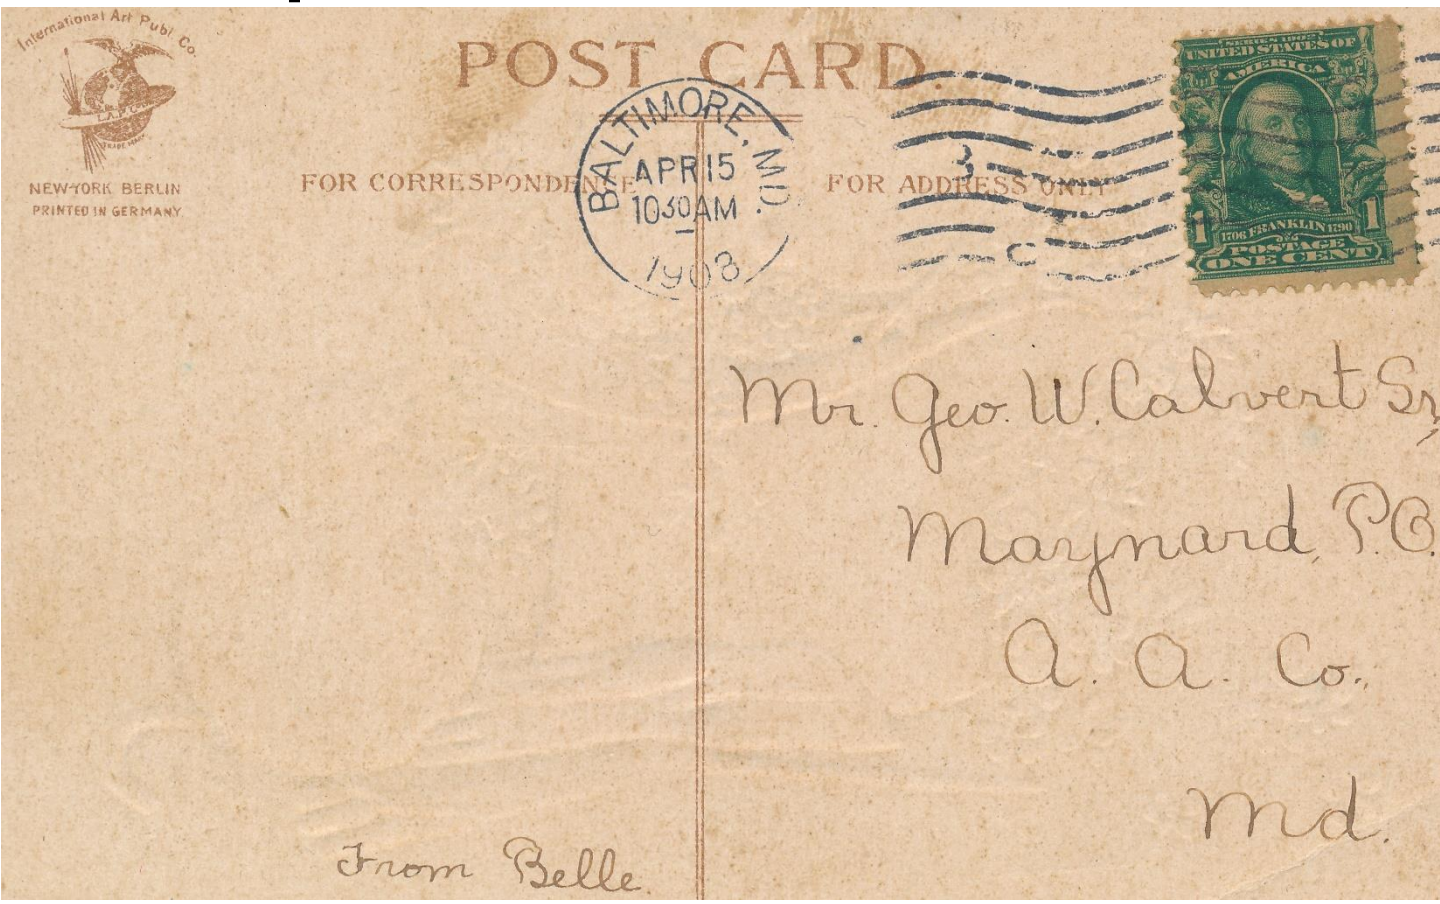 International Art Publ. Co.
I.A.P.C.
TRADE MARK
NEW-YORK BERLIN
PRINTED IN GERMANY.
POST CARD.
FOR CORRESPONDENCE
FOR ADDRESS ONLY
BALTIMORE, MD.
APR 15
1030 AM
1908
3
C
SERIES 1902
UNITED STATES OF
AMERICA
1706 FRANKLIN 1790
1 1
POSTAGE
ONE CENT
Mr. Geo. W. Calvert Sr,
Maynard, P.O.
A. A. Co.,
Md.
From Belle.